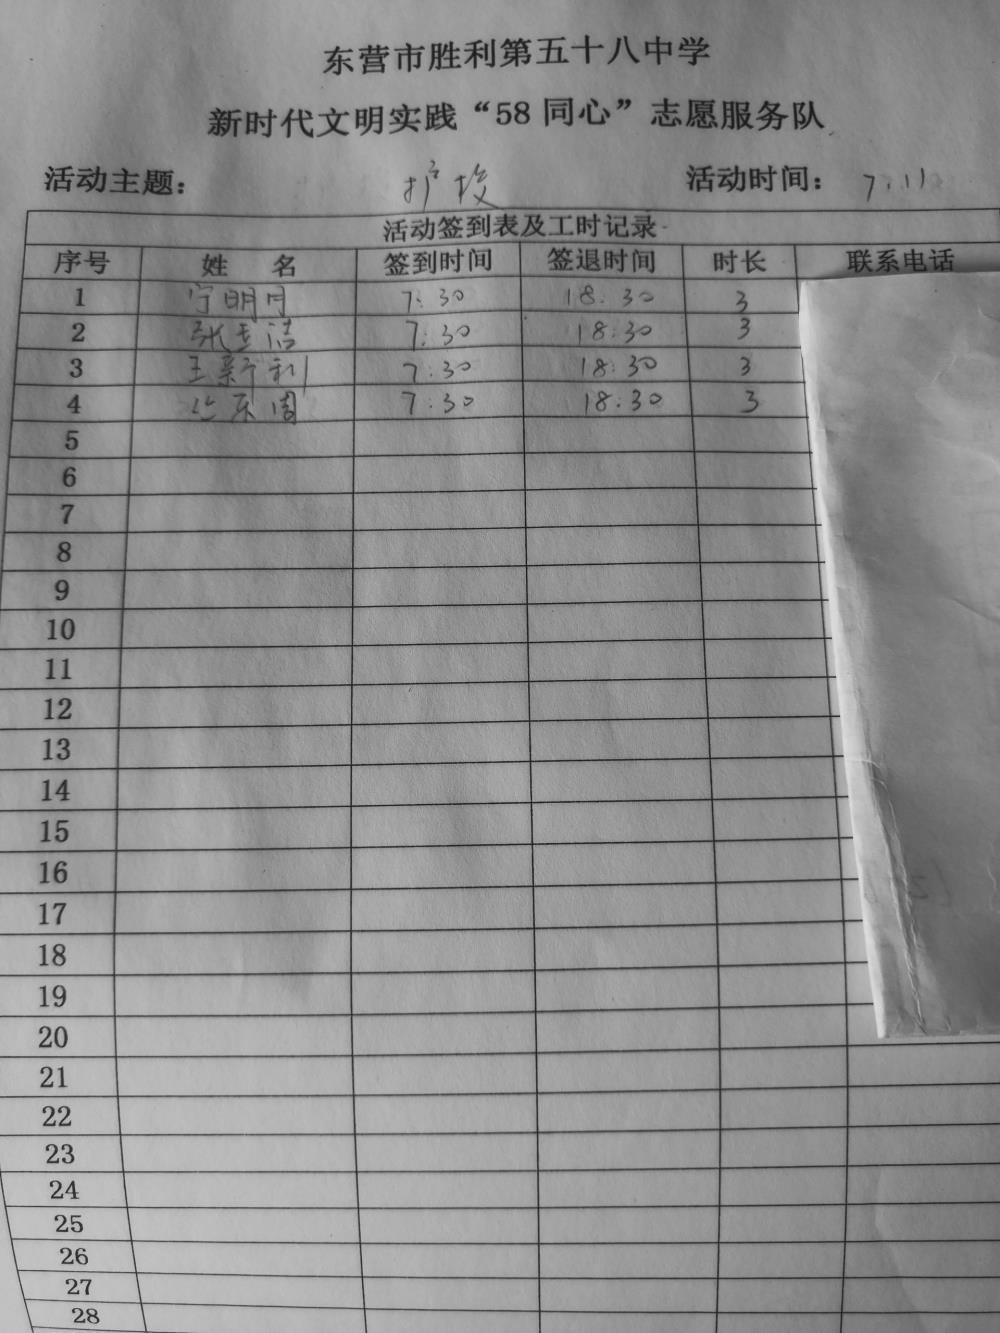 东营市胜利第五十八中学
新时代文明实践“58同心”志愿服务队
活动主题： 护校 活动时间： 7.11
活动签到表及工时记录
序号 姓 名 签到时间 签退时间 时长 联系电话
1 宁明月 7:30 18:30 3
2 张玉洁 7:30 18:30 3
3 王新利 7:30 18:30 3
4 7:30 18:30 3
5
6
7
8
9
10
11
12
13
14
15
16
17
18
19
20
21
22
23
24
25
26
27
28